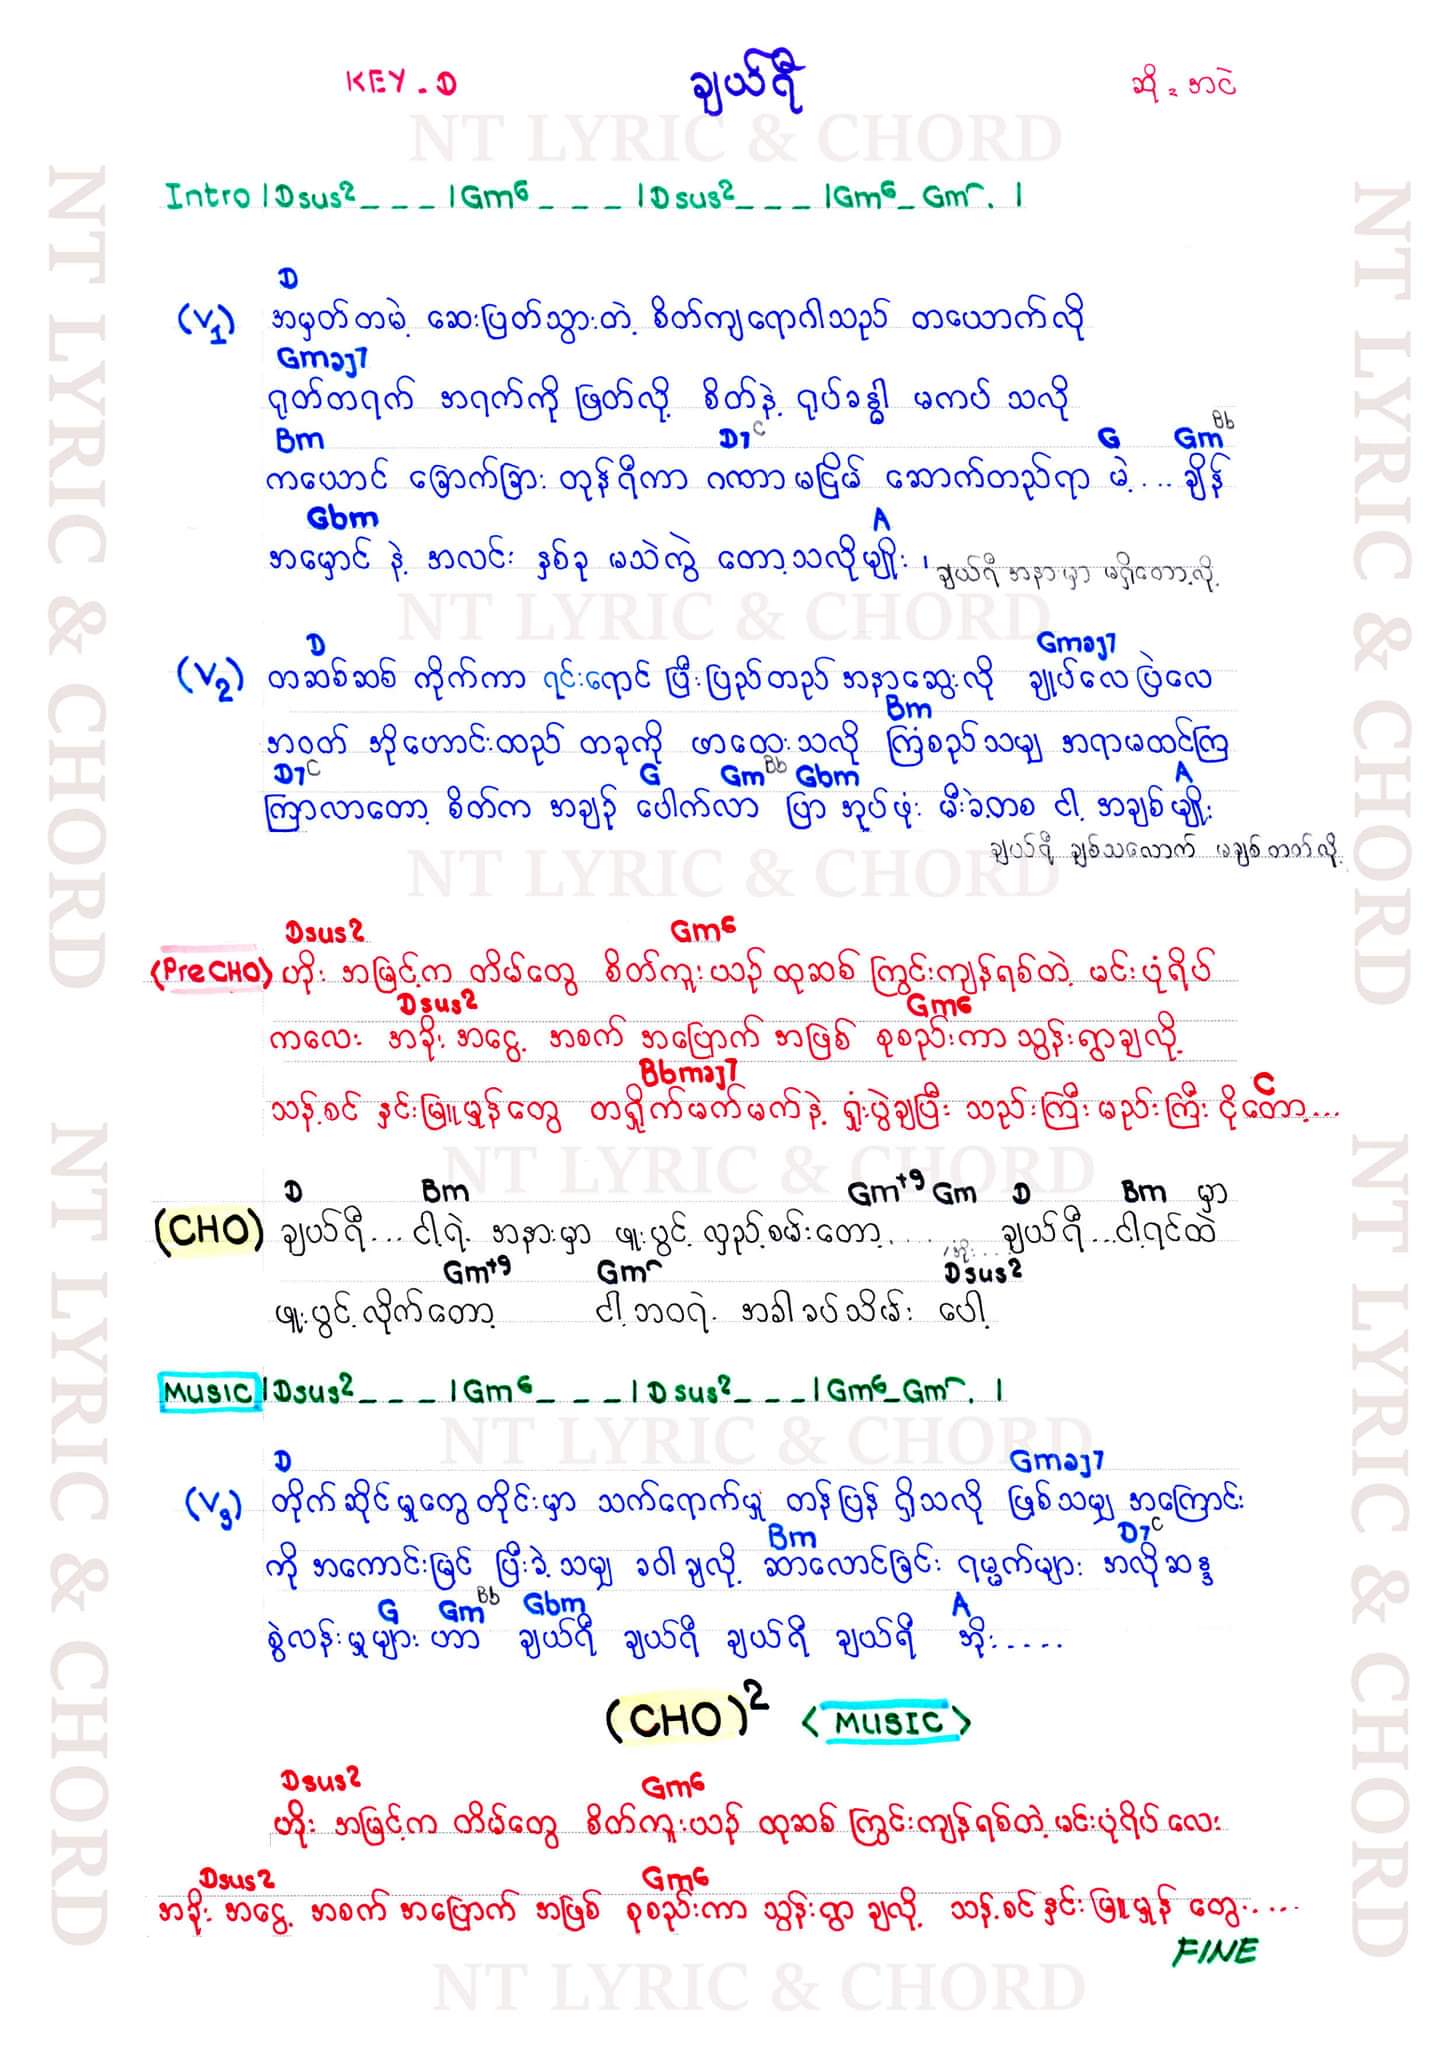 KEY - D ချယ်ရီ ဆို = အငဲ
NT LYRIC & CHORD
Intro | Dsus2 _ _ _ | Gm6 _ _ _ | Dsus2 _ _ _ | Gm6 _ Gm . |
D
(V1) အမှတ်တမဲ့ ဆေးပြတ်သွားတဲ့ စိတ်ကျရောဂါသည် တယောက်လို
Gmaj7
ရုတ်တရက် အရက်ကို ဖြတ်လို့ စိတ်နဲ့ ရုပ်ခန္ဓါ မကပ် သလို
Bm D7 C G Gm Bb
ကယောင် ခြောက်ခြား တုန်ရီကာ ဂဏာမငြိမ် ဆောက်တည်ရာ မဲ့.... ချိန်
Gbm A
အမှောင် နဲ့ အလင်း နှစ်ခု မသဲကွဲ တော့သလိုမျိုး ၊ ချယ်ရီ အနားမှာ မရှိတော့လို့
NT LYRIC & CHORD
D Gmaj7
(V2) တဆစ်ဆစ် ကိုက်ကာ ရင်းရောင် ပြီးပြည်တည် အနာဆွေးလို ချုပ်လေ ပြဲလေ
Bm
အဝတ် အိုဟောင်းထည် တခုကို ဖာထေးသလို ကြံစည်သမျှ အရာမထင်ကြ
D7 C G Gm Bb Gbm A
ကြာလာတော့ စိတ်က အချဉ် ပေါက်လာ ပြာ အုပ်ဖုံး မီးခဲ့တစ ငါ့ အချစ်မျိုး
ချယ်ရီ ချစ်သလောက် မချစ်တတ်လို့
NT LYRIC & CHORD
Dsus2 Gm6
(Pre CHO) ဟိုး အမြင့်က တိမ်တွေ စိတ်ကူးယဉ် ထုဆစ် ကြွင်းကျန်ရစ်တဲ့ မင်းပုံရိပ်
Dsus2 Gm6
ကလေး အခိုး အငွေ့ အစက် အပြောက် အဖြစ် စုစည်းကာ သွန်းရွာချလို့
Bbmaj7 C
သန့်စင် နှင်းမြူမှုန်တွေ တရှိုက်မက်မက်နဲ့ ရှုံးပွဲချပြီး သည်းကြီးမည်းကြီး ငိုတော့...
NT LYRIC & CHORD
D Bm Gm+9 Gm D Bm မှာ
(CHO) ချယ်ရီ... ငါ့ရဲ့ အနားမှာ ဖူးပွင့် လှည့်စမ်းတော့...... ချယ်ရီ...ငါ့ရင်ထဲ
Gm+9 Gm Dsus2
ဖူးပွင့် လိုက်တော့ ငါ့ဘဝရဲ့ အခါခပ်သိမ်း ပေါ့
MUSIC | Dsus2 _ _ _ | Gm6 _ _ _ | Dsus2 _ _ _ | Gm6 _ Gm . |
NT LYRIC & CHORD
D Gmaj7
(V3) တိုက်ဆိုင်မှုတွေ တိုင်းမှာ သက်ရောက်မှု တန်ပြန် ရှိသလို ဖြစ်သမျှ အကြောင်း
Bm D7 C
ကို အကောင်းမြင် ပြီးခဲ့သမျှ ခဝါချလို့ ဆာလောင်ခြင်း ရမ္မက်များ အလိုဆန္ဒ
G Gm Bb Gbm A
စွဲလန်းမှုများ ဟာ ချယ်ရီ ချယ်ရီ ချယ်ရီ ချယ်ရီ အိုး.....
(CHO)2 < MUSIC >
Dsus2 Gm6
ဟိုး အမြင့်က တိမ်တွေ စိတ်ကူးယဉ် ထုဆစ် ကြွင်းကျန်ရစ်တဲ့ မင်းပုံရိပ် လေး
Dsus2 Gm6
အခိုး အငွေ့ အစက် အပြောက် အဖြစ် စုစည်းကာ သွန်းရွာ ချလို့ သန့်စင် နှင်းမြူမှုန် တွေ.....
FINE
NT LYRIC & CHORD
NT LYRIC & CHORD
NT LYRIC & CHORD
NT LYRIC & CHORD
NT LYRIC & CHORD